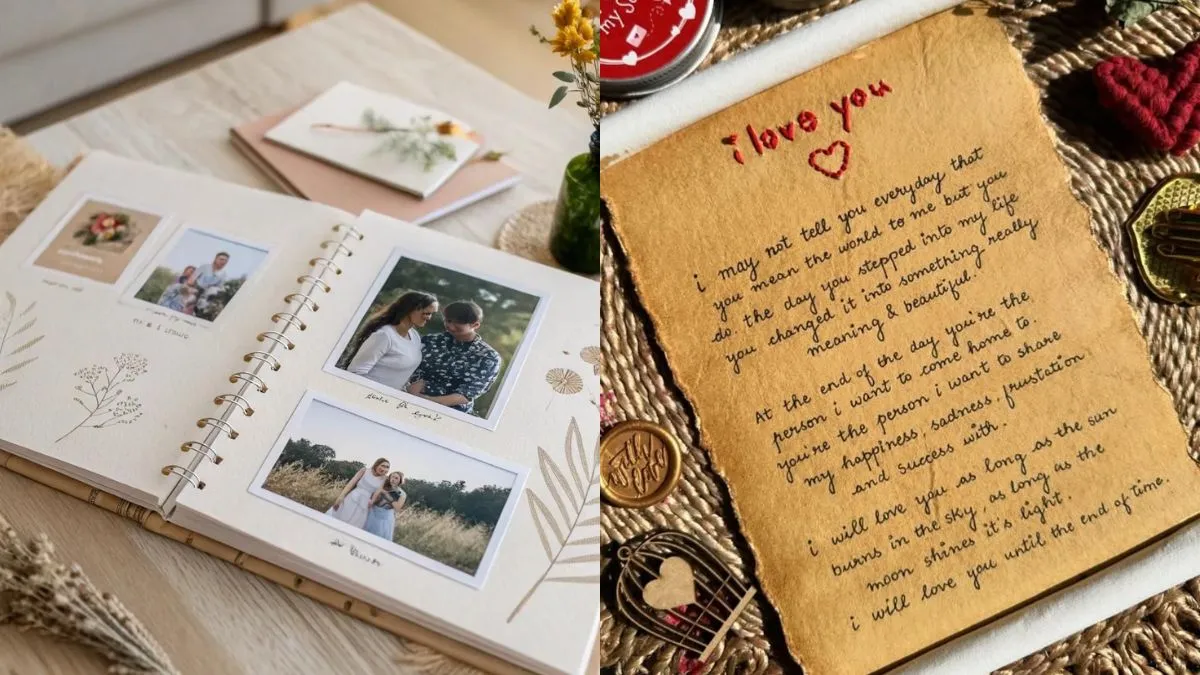 my So
i love you
i may not tell you everyday that
you mean the world to me but you
do. the day you stepped into my life
you changed it into something really
meaning & beautiful.
At the end of the day you're the
person i want to come home to.
you're the person i want to share
my happiness, sadness, frustation
and success with.
i will love you as long as the sun
burns in the sky, as long as the
moon shines it's light.
i will love you until the end of time.
with
love